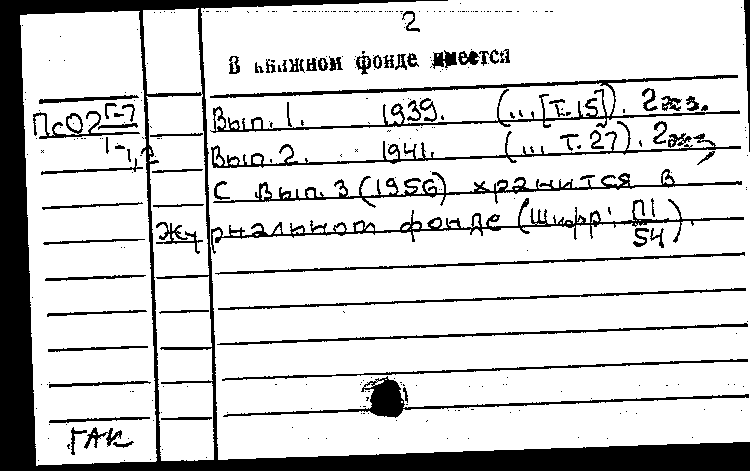 2
В книжном фонде имеется
ПсО2 Г-7 Вып. 1. 1939. (... [Т.15]). 2 экз.
Г-1,2 Вып. 2. 1941. (... Т. 27). 2 экз.
С Вып. 3 (1956) хранится в
Журнальном фонде (Шифр: П1/54).
ГАК